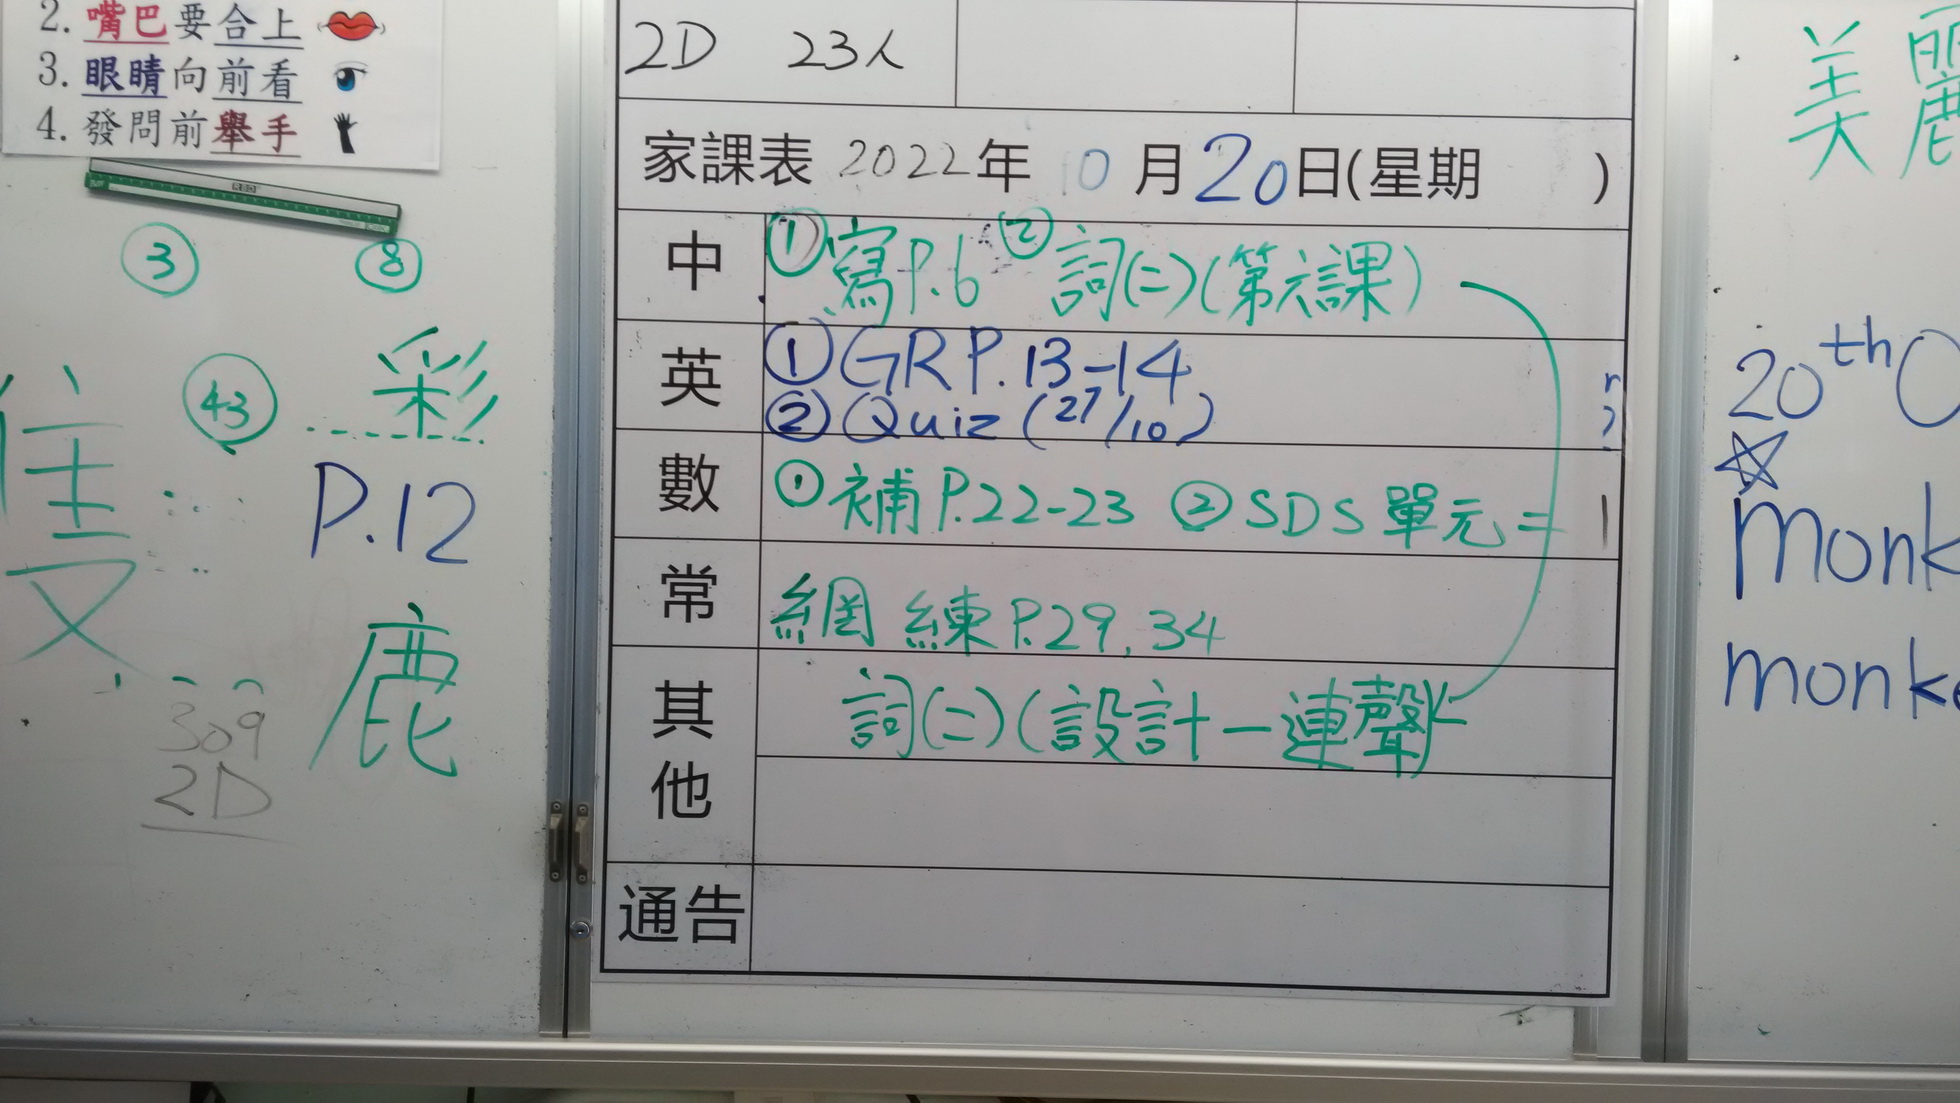 2. 嘴巴要合上
3. 眼睛向前看
4. 發問前舉手
③ ⑧
㊸ 彩
P.12
鹿
309
2D
2D 23人
家課表 2022年 10月20日(星期 )
中 ①寫P.6 ②詞(二)(第六課)
英 ①GR P.13-14
②Quiz (27/10)
數 ①補P.22-23 ②SDS單元二
常 網 練P.29, 34
其他 詞(二)(設計一連聲)
通告
美麗
20th O
monk
monke